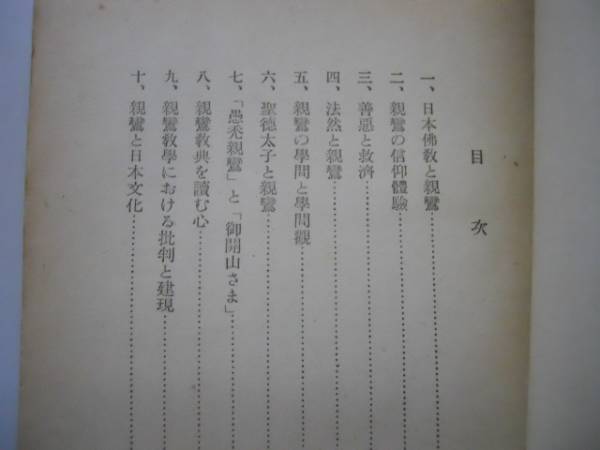 目次
一、日本佛敎と親鸞
二、親鸞の信仰體驗
三、善惡と救濟
四、法然と親鸞
五、親鸞の學問と學問觀
六、聖德太子と親鸞
七、「愚禿親鸞」と「御開山さま」
八、親鸞敎典を讀む心
九、親鸞敎學における批判と建現
十、親鸞と日本文化